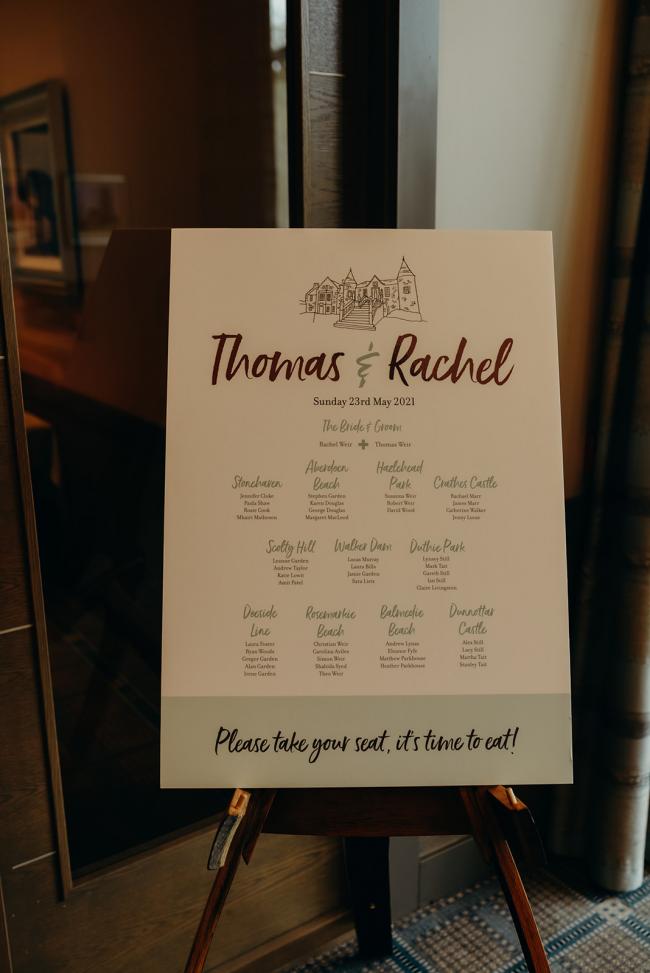 Thomas & Rachel
Sunday 23rd May 2021
The Bride & Groom
Rachel Weir + Thomas Weir
Stonehaven
Jennifer Cloke
Paula Shaw
Rosie Cook
Mhairi Matheson
Aberdeen
Beach
Stephen Garden
Karen Douglas
George Douglas
Margaret MacLeod
Hazlehead
Park
Susanna Weir
Robert Weir
David Wood
Crathes Castle
Rachael Marr
James Marr
Catherine Walker
Jenny Lucas
Scolty Hill
Leanne Garden
Andrew Taylor
Katie Lowit
Amit Patel
Walker Dam
Lucas Murray
Laura Bills
Jamie Garden
Sara Lietz
Duthie Park
Lynsey Still
Mark Tait
Gareth Still
Ian Still
Claire Livingston
Deeside
Line
Laura Foster
Ryan Woods
Gregor Garden
Alan Garden
Irene Garden
Rosemarkie
Beach
Christian Weir
Carolina Aviles
Simon Weir
Shahida Syed
Theo Weir
Balmedie
Beach
Andrew Lyons
Eleanor Fyfe
Matthew Parkhouse
Heather Parkhouse
Dunnottar
Castle
Alex Still
Lucy Still
Martha Tait
Stanley Tait
Please take your seat, it's time to eat!